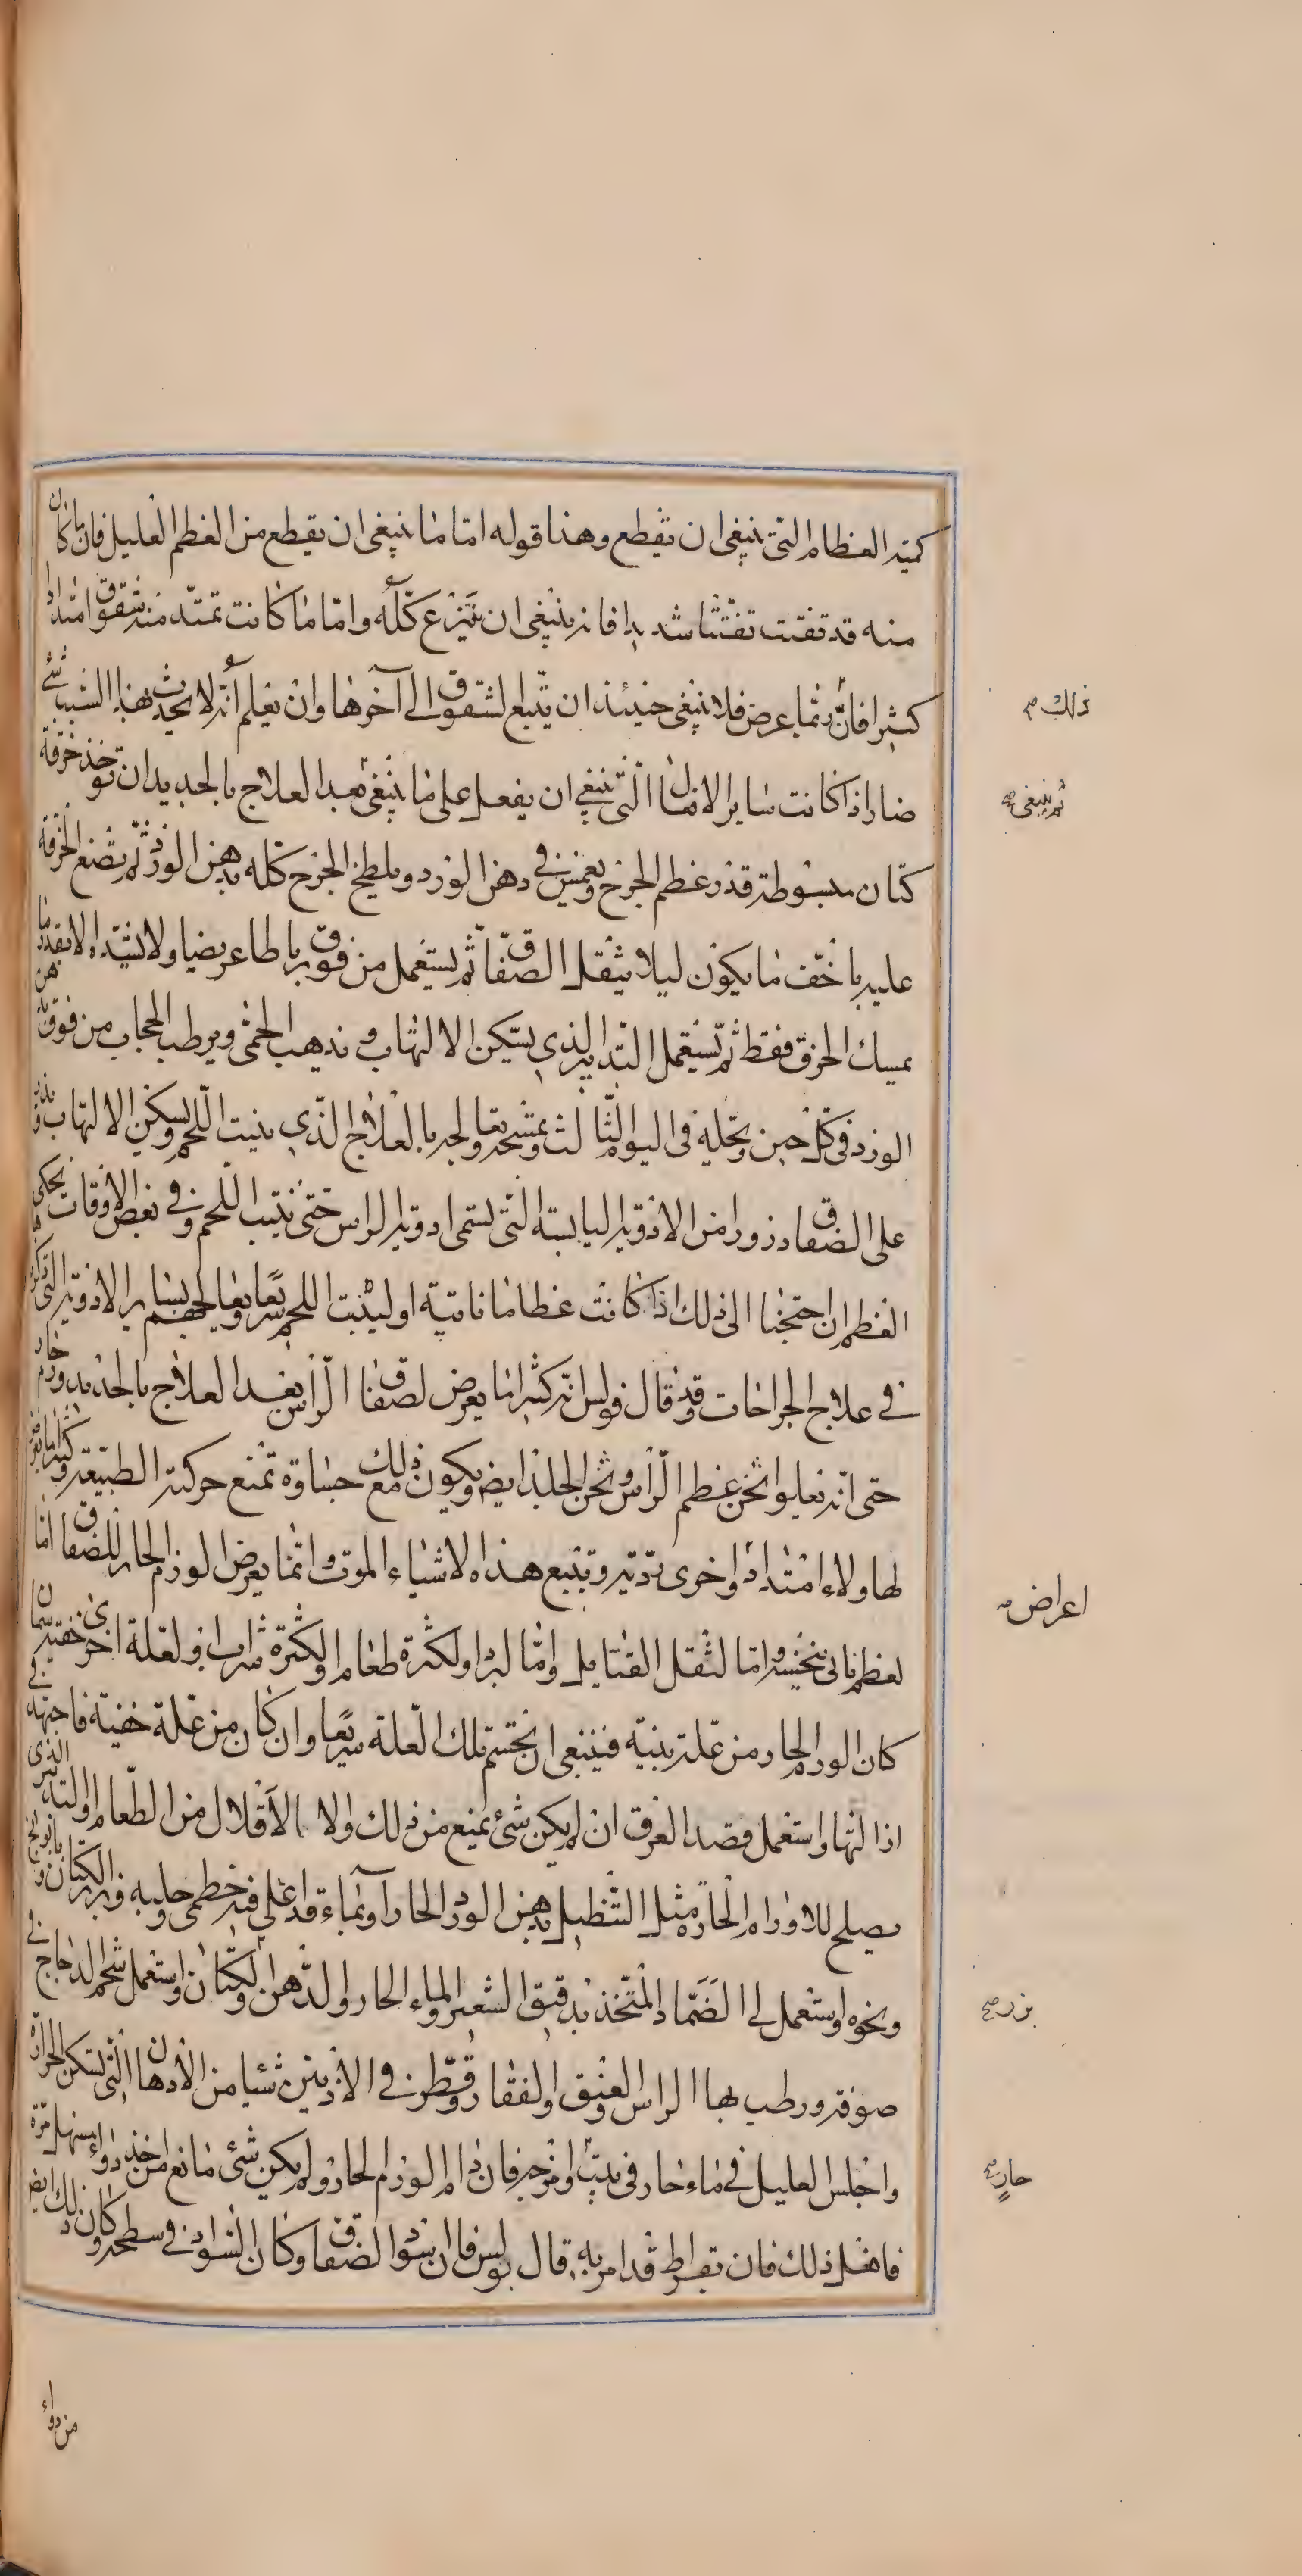 كمية العظام التى ينبغى ان تقطع وهذا قوله اما ما ينبغى ان يقطع من العظم العليل فان ما كان
منه قد تفتت تفتتا شديدا فانه ينبغى ان ينزع كله واما ما كانت تمتد منه شقوق امتدادا
كثيرا فان ربما عرض فلا ينبغى حينئذ ان يتبع الشقوق الى آخرها وان يعلم انه لا يحدث بهذا السبب شئ
ضار اذا كانت ساير الافعال التى ينبغى ان يفعل على ما ينبغى بعد العلاج بالحديد ان توخذ خرقة
كتان مبسوطة قدر عظم الجرح وتغمس فى دهن الورد ويلطخ الجرح كله بدهن الورد ثم تضع الخرقة
عليه باخف ما يكون ليلا يثقل الصفاق ثم يستعمل من فوق رباطا عريضا ولا يشده الا بقدر ما
يمسك الخرق فقط ثم تستعمل التدابير الذى يسكن الالتهاب ويذهب الحمى ويرطب الحجاب من فوق بدهن
الورد فى كل حين وتحله فى اليوم الثالث وتمسحه وتعالجه بالعلاج الذى ينبت اللحم ويسكن الالتهاب وتذر
على الصفاق ذرورا من الادوية اليابسة التى تسمى ادوية الراس حتى ينبت اللحم وفى بعض الاوقات يحكى
العظم ان احتجنا الى ذلك اذا كانت عظاما ناتية او لينبت اللحم سريعا ويعالجهم بساير الادوية التى ذكرناها
فى علاج الجراحات وقد قال فولس انه كثيرا ما يعرض لصفاق الراس بعد العلاج بالحديد ورم حار
حتى انه يعلوا ثخن عظم الراس وثخن الجلد ايض ويكون مع ذلك جساوة تمنع حركته الطبيعة وكثيرا ما يعرض
لها ولاء امتداد واخرى ردية وتتبع هذه الاشياء الموت وانما يعرض الورم الحار للصفاق اما
لعظم ناتى ينخسه واما لثقل الفتايل واما لبرد او لكثرة طعام او لكثرة شراب او لعلة اخرى خفية فان
كان الورم الحار من علة بينة فينبغى ان تحسم تلك العلة سريعا وان كان من علة خفية فاجتهد فى
اذالتها واستعمل فصد العرق ان لم يكن شئ يمنع من ذلك والا الاقلال من الطعام والتدبير الذى
يصلح للاورام الحارة مثل التنطيل بدهن الورد الحار او بماء قد اغلى فيه خطمى وحلبة وبزر الكتان وبابونج
ونحوه واستعمل الضماد المتخذ بدقيق الشعير والماء الحار والدهن والكتان واستعمل شحم الدجاج فى
صوفة ورطب بها الراس والعنق والفقار وقطر فى الاذنين شيا من الادهان التى تسكن الحرارة
واجلس العليل فى ماء حار فى بيت او فان دام الورم الحار ولم يكن شئ مانع من اخذ دواء مسهل مرة
فافعل ذلك فان بقراط قد امر به قال بولس فان اسود الصفاق وكان السواد فى سطحه وكان ذلك ايض
ذلك
ثم ينبغى صح
اعراض
بزر صح
حار
من دواء